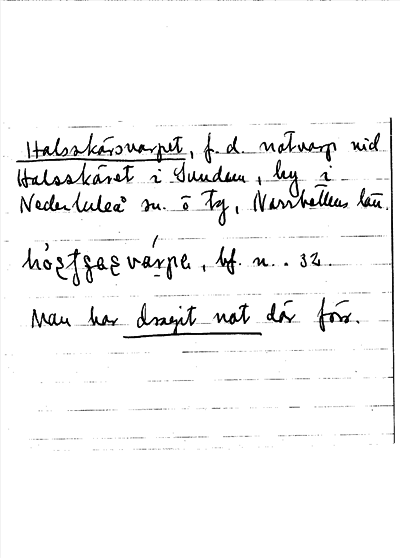 Halsskärsvarpet, f. d. notvarp vid
Halsskäret i Sunden, by i
Nederluleå sn. o tg, Norrbottens län.
bf. n. . 32.
Man har dragit not där förr.